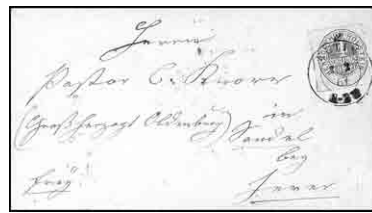 Herrn
Pastor C. Knorr
(Großherzogt Oldenburg)
in
Sandel
bey
frey.
Jever